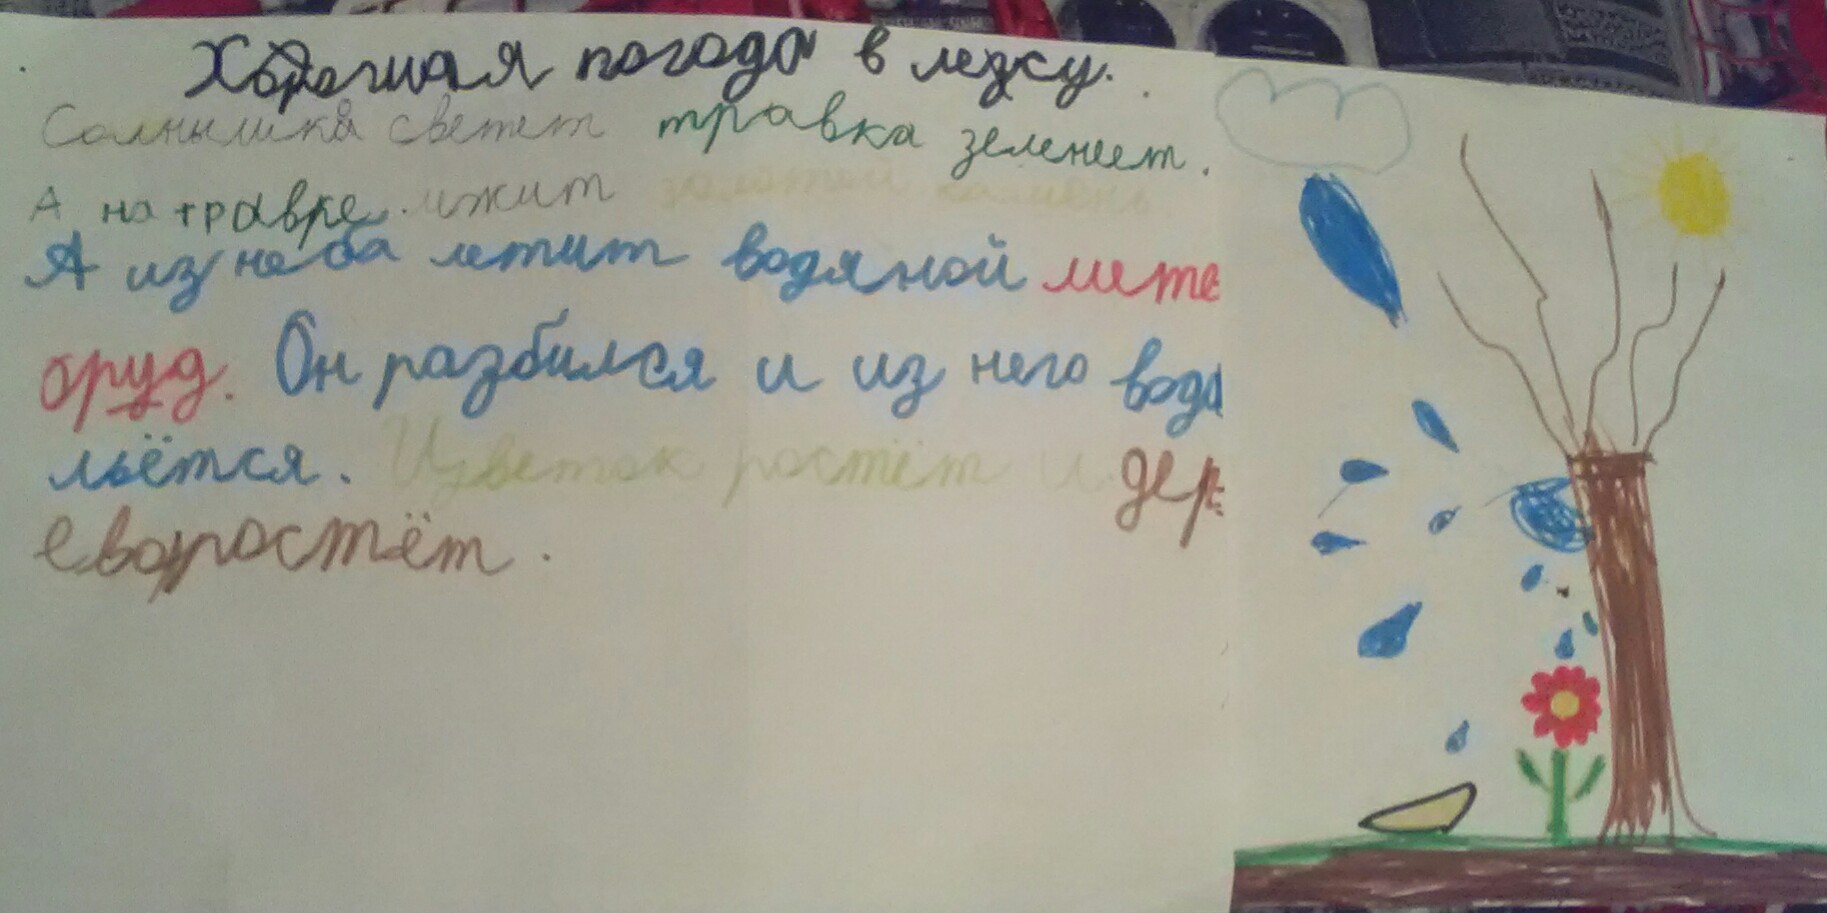 Хорошая погода в лезсу.
Солнышка светет травка зеленеет.
А на травке лжит золотой камень
А из неба летит водяной мете
оруд. Он разбился и из него вода
льётся. Цветок ростёт и дер-
ево ростёт.